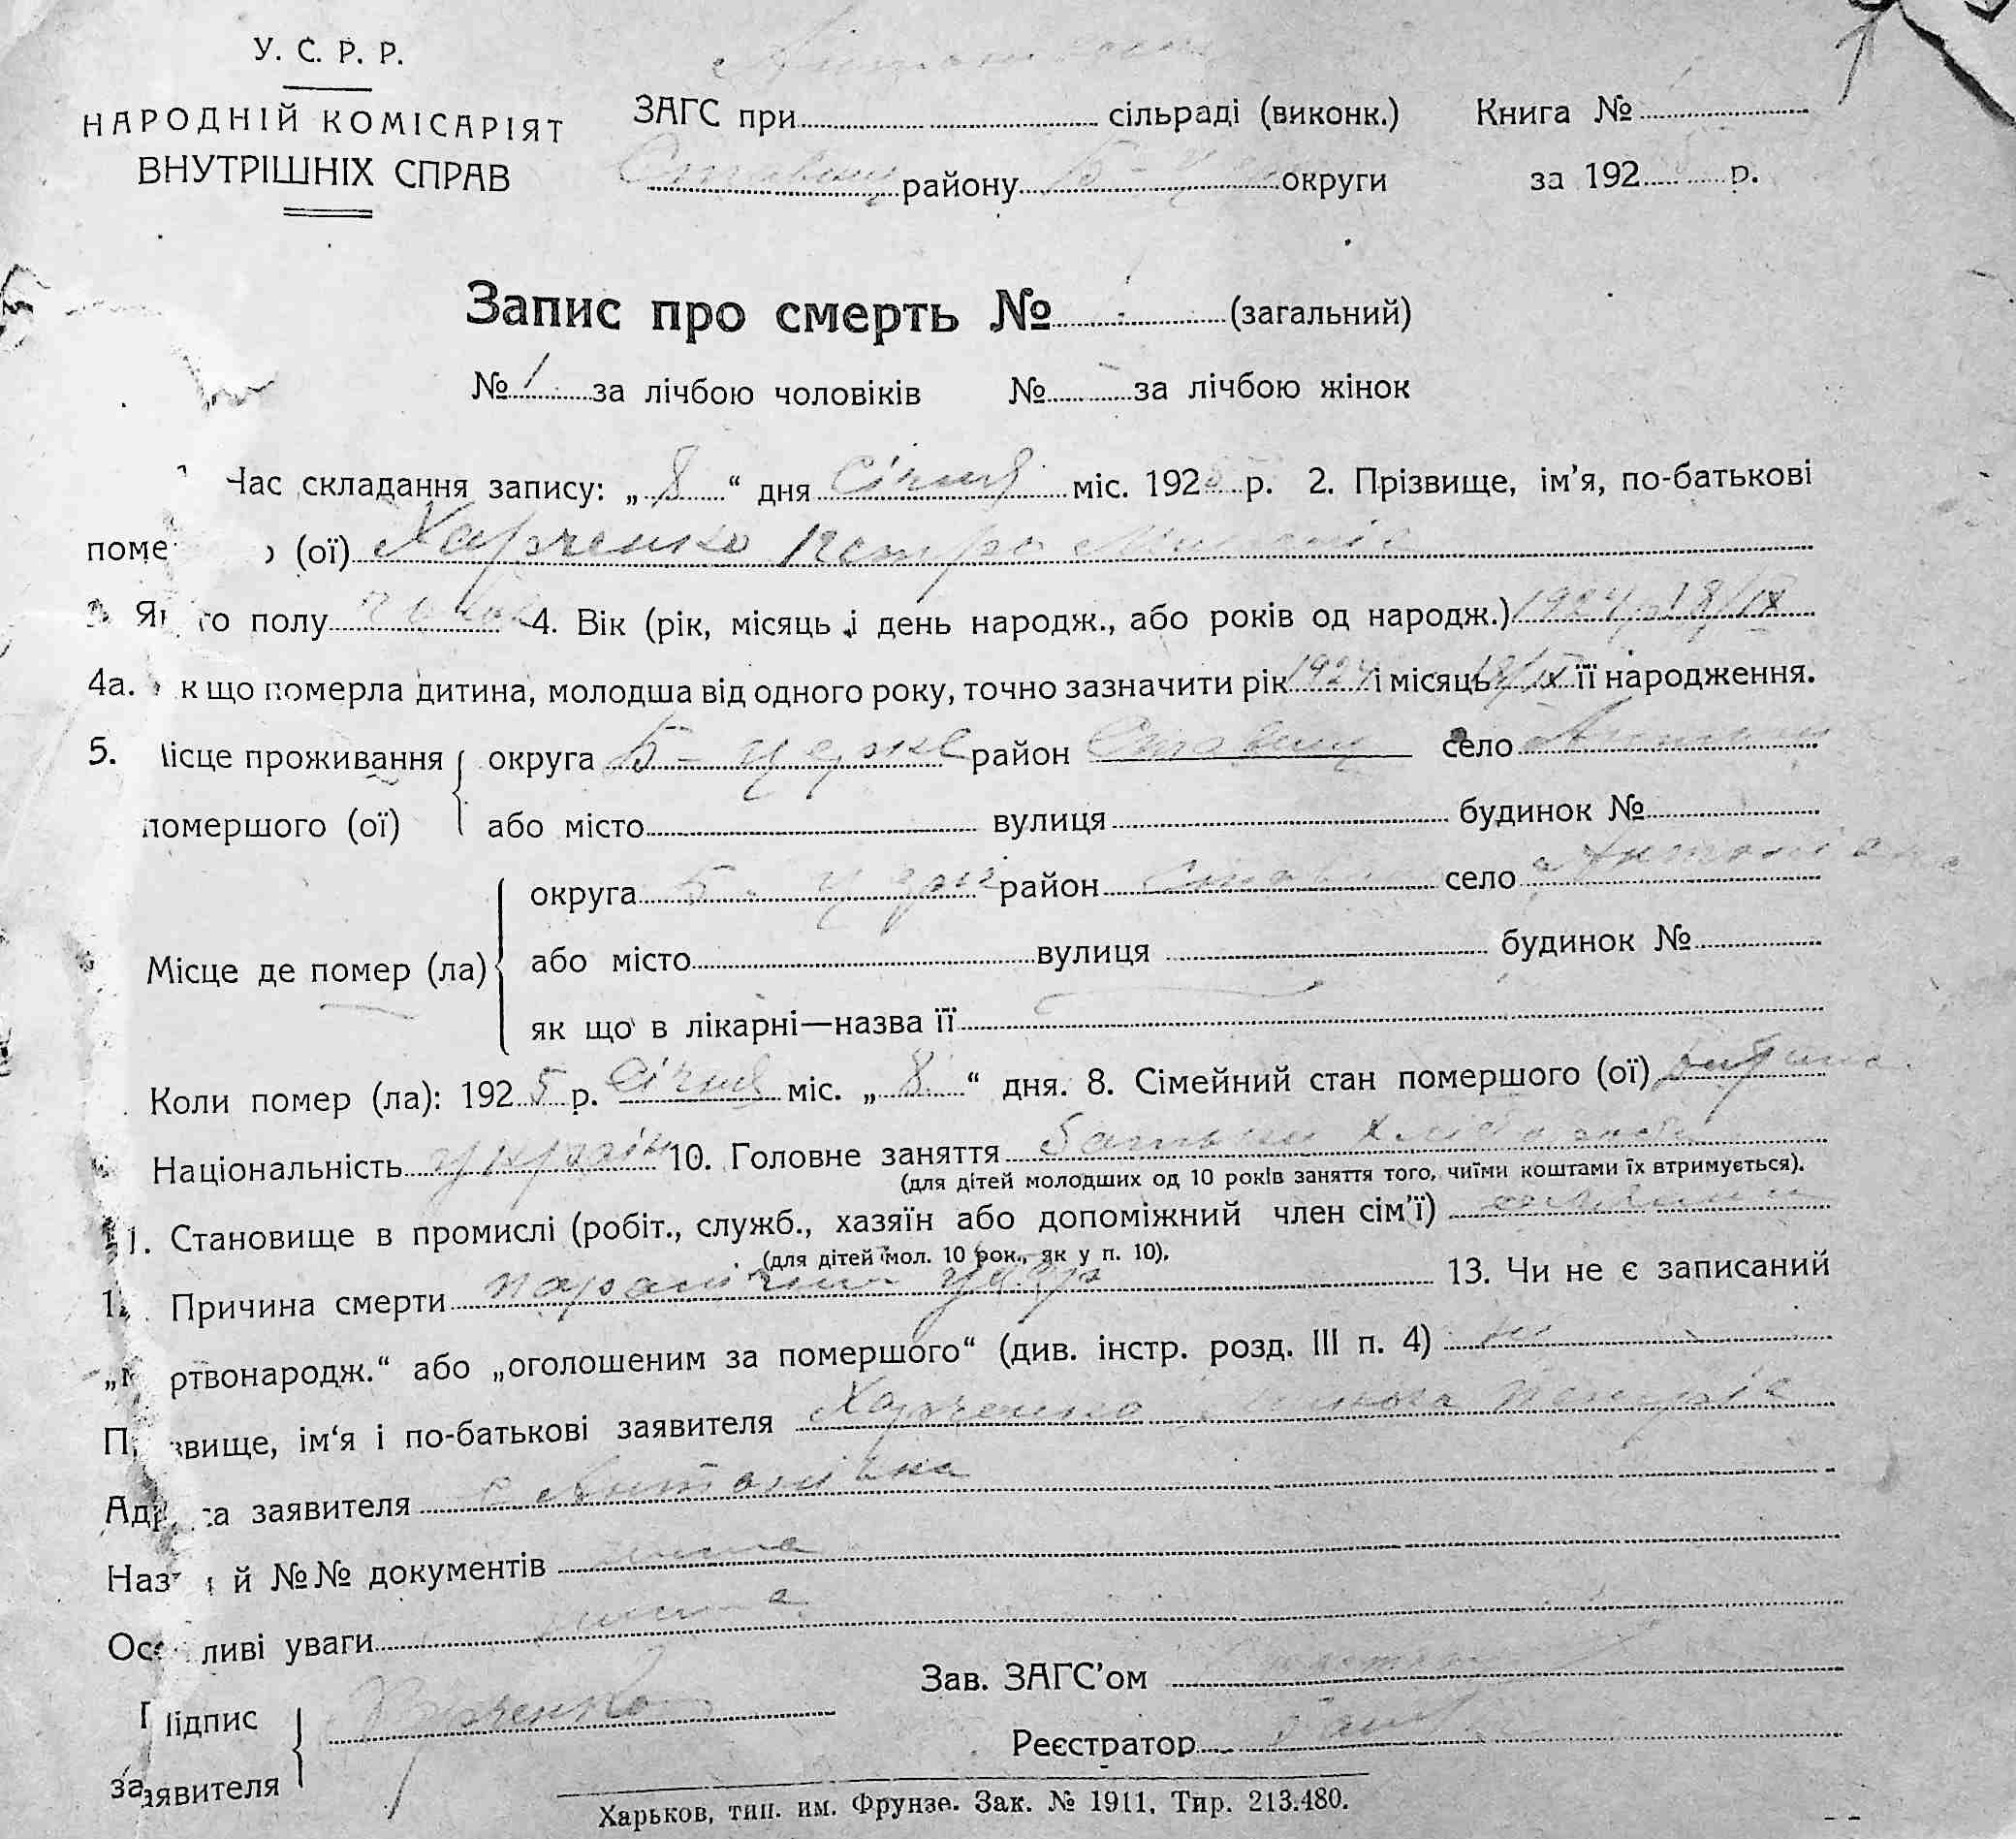 У. С. Р. Р.
НАРОДНІЙ КОМІСАРІЯТ
ВНУТРІШНІХ СПРАВ
ЗАГС при сільраді (виконк.) Книга №
Ставищ району Б - Ц округи за 192 р.
Запис про смерть № (загальний)
№ 1 за лічбою чоловіків № за лічбою жінок
Час складання запису: „ 8 “ дня Січня міс. 1925 р. 2. Прізвище, ім’я, по-батькові
поме (ої) Харченко Петро
3. Як го полу чолов 4. Вік (рік, місяць і день народж., або років од народж.) 1924 р 18/IX
4а. к що померла дитина, молодша від одного року, точно зазначити рік 1924 і місяць 18/IX її народження.
5. Місце проживання округа Б - Церкв район Ставищ село Антон
помершого (ої) або місто вулиця будинок №
округа Б - Церк район Ставищ село Антонівка
Місце де помер (ла) або місто вулиця будинок №
як що в лікарні—назва її
Коли помер (ла): 1925 р. Січня міс. „ 8 “ дня. 8. Сімейний стан помершого (ої) дитина
Національність україн 10. Головне заняття батьки хлібороби
(для дітей молодших од 10 років заняття того, чиїми коштами їх втримується).
11. Становище в промислі (робіт., служб., хазяїн або допоміжний член сім’ї)
(для дітей мол. 10 рок., як у п. 10).
12. Причина смерти 13. Чи не є записаний
„м ртвонародж.“ або „оголошеним за помершого“ (див. інстр. розд. III п. 4) ні
Пр звище, ім‘я і по-батькові заявителя Харченко Петрів
Адр са заявителя с Антонівка
Наз й №№ документів нема
Осо ливі уваги нема
Зав. ЗАГС’ом
Підпис Харченко
Реєстратор
заявителя
Харьков, тип. им. Фрунзе. Зак. № 1911. Тир. 213.480.